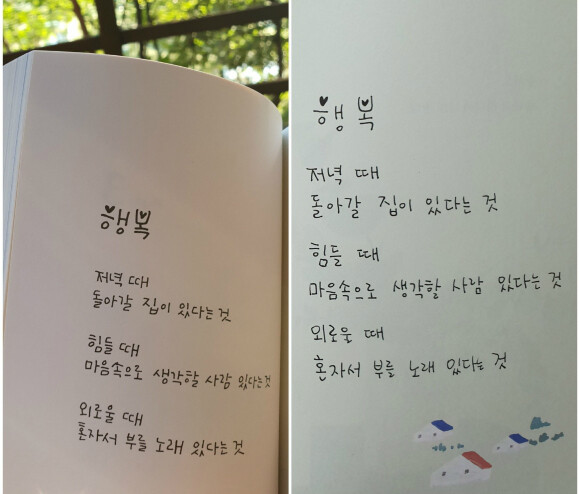 행복
저녁 때
돌아갈 집이 있다는 것
힘들 때
마음속으로 생각할 사람 있다는 것
외로울 때
혼자서 부를 노래 있다는 것
행복
저녁 때
돌아갈 집이 있다는 것
힘들 때
마음속으로 생각할 사람 있다는 것
외로울 때
혼자서 부를 노래 있다는 것